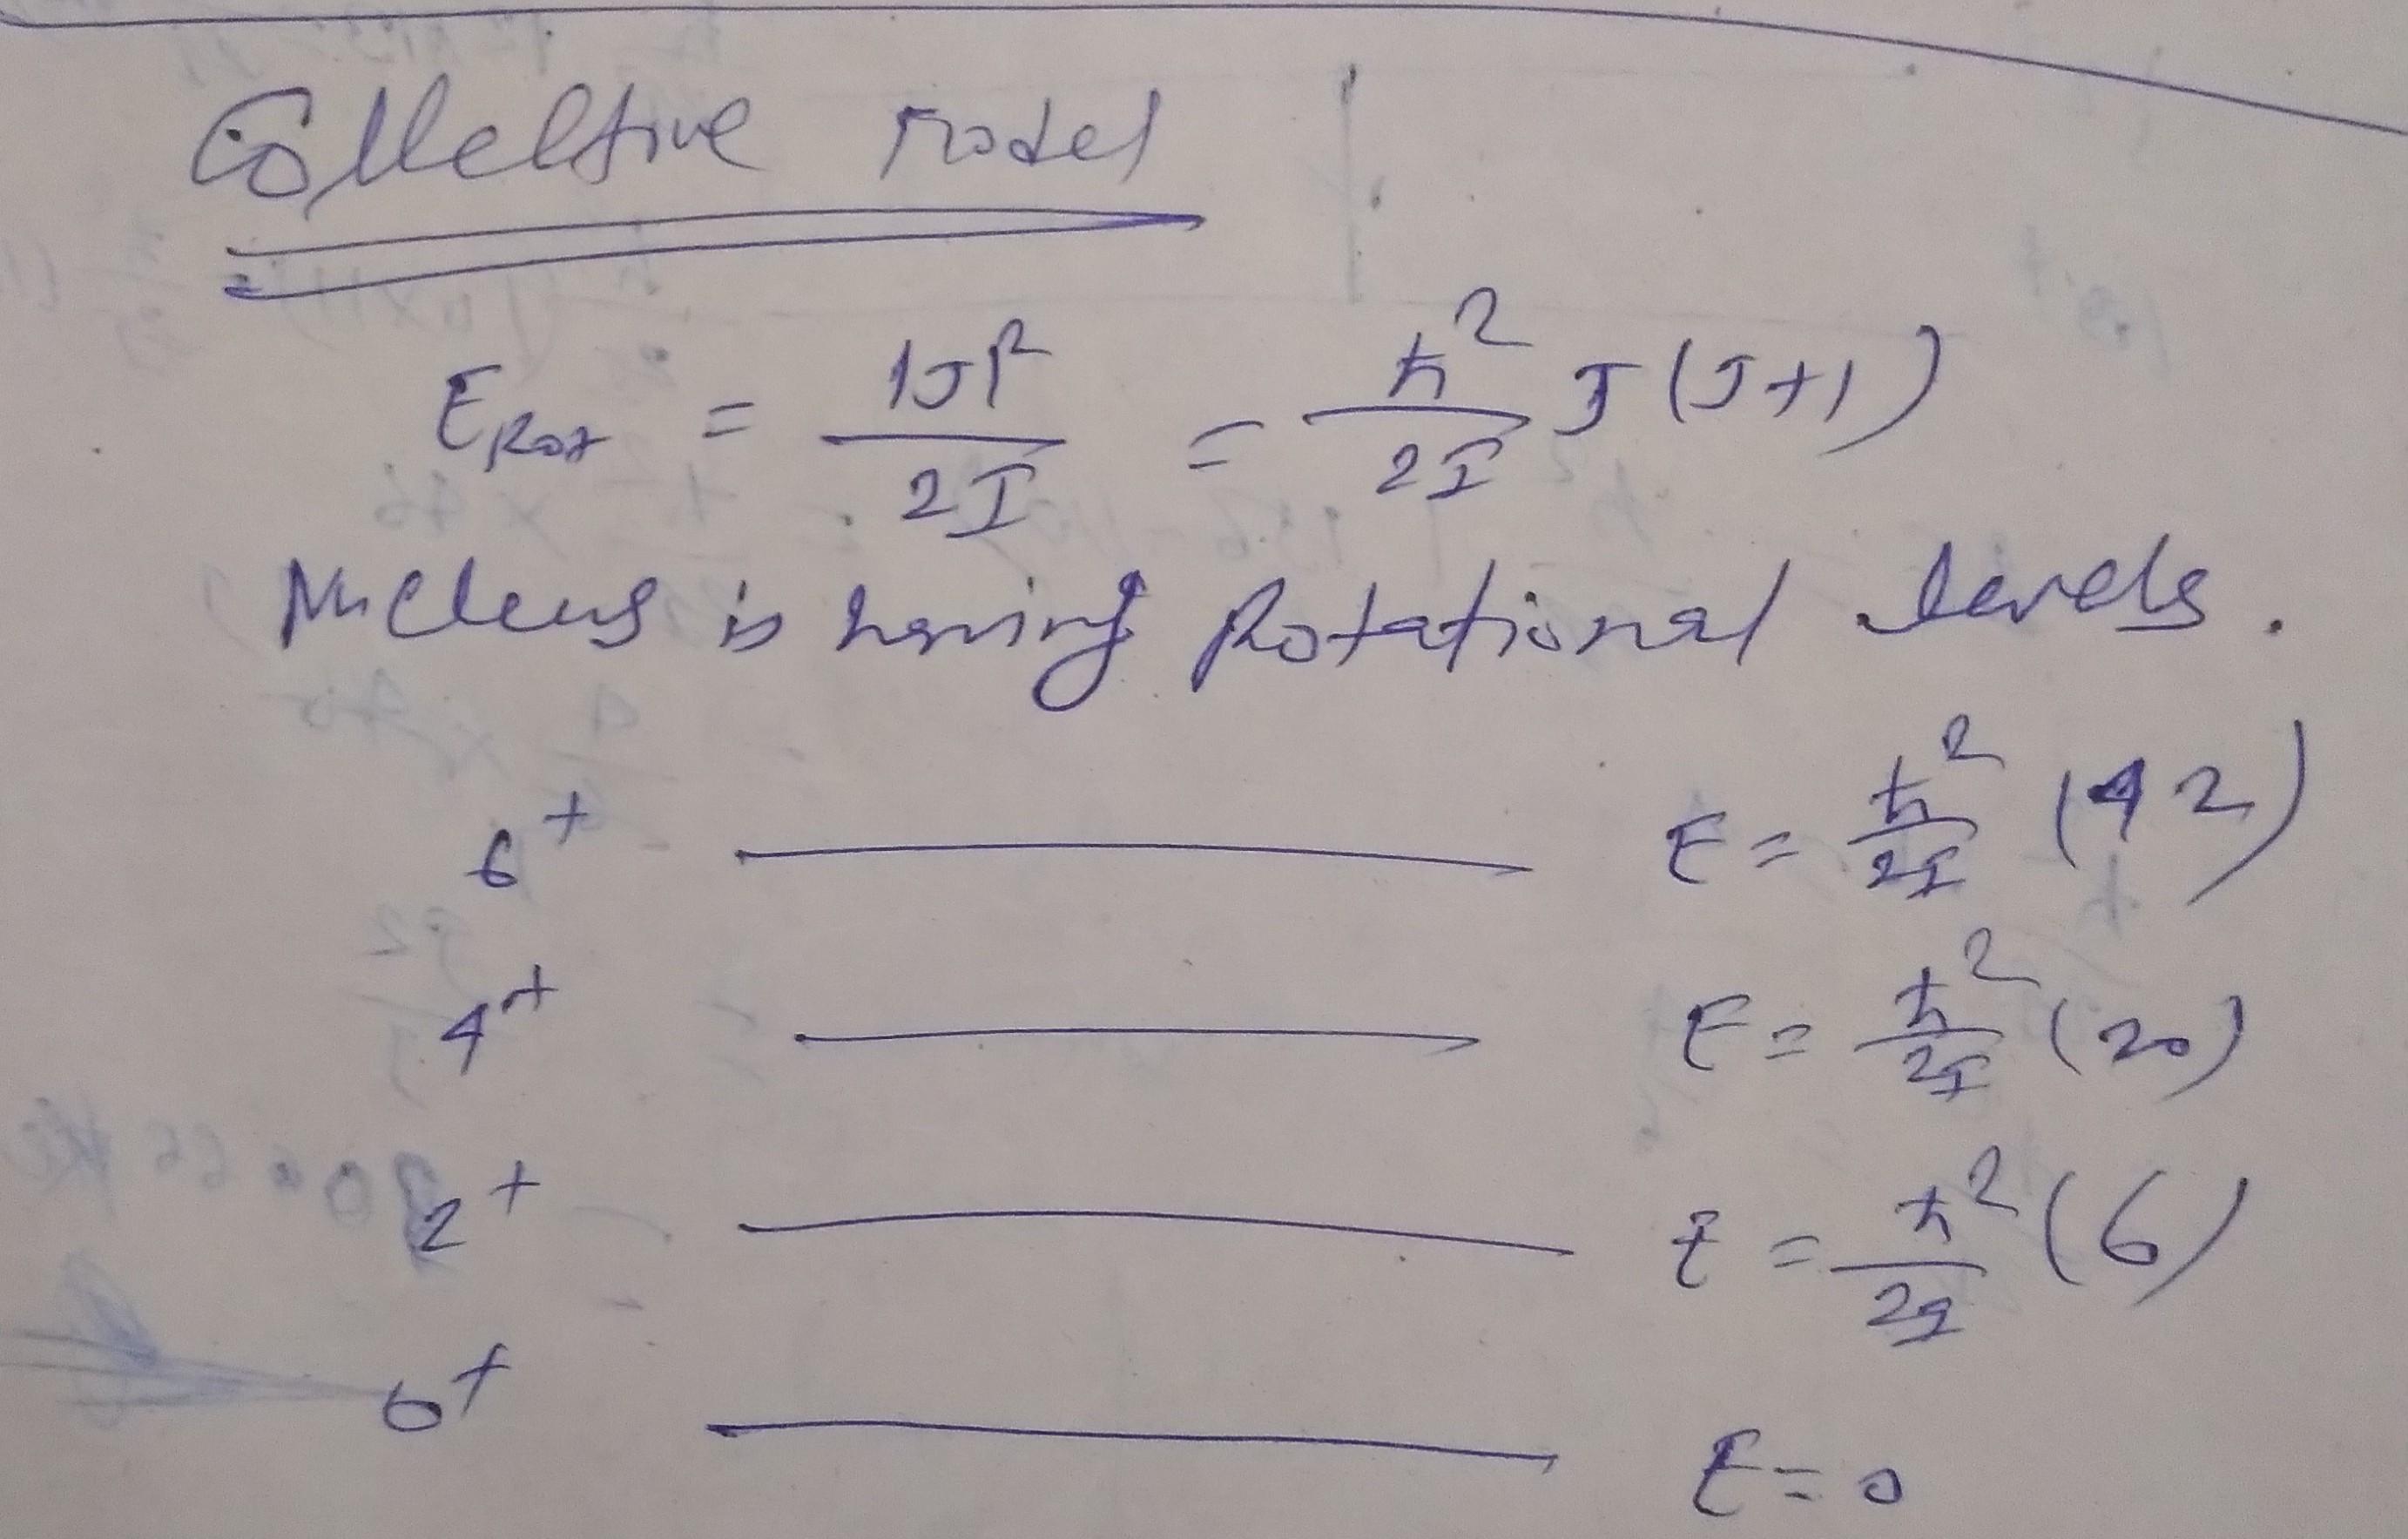 Collective Model
E_Rot = |J|² / 2I = ħ² / 2I J(J+1)
Nucleus is having Rotational levels.
6⁺ E = ħ² / 2I (42)
4⁺ E = ħ² / 2I (20)
2⁺ E = ħ² / 2I (6)
0⁺ E = 0